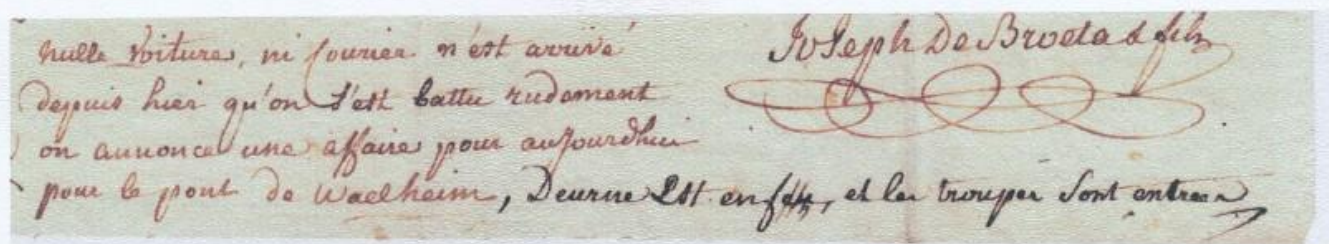 nulle voiture, ni courier n'est arrivé
depuis hier qu'on s'est battu rudement
on annonce une affaire pour aujourdhui
pour le pont de Waelheim, Deurne Est en, et les troupes sont entrees
Joseph De Broeta & fils